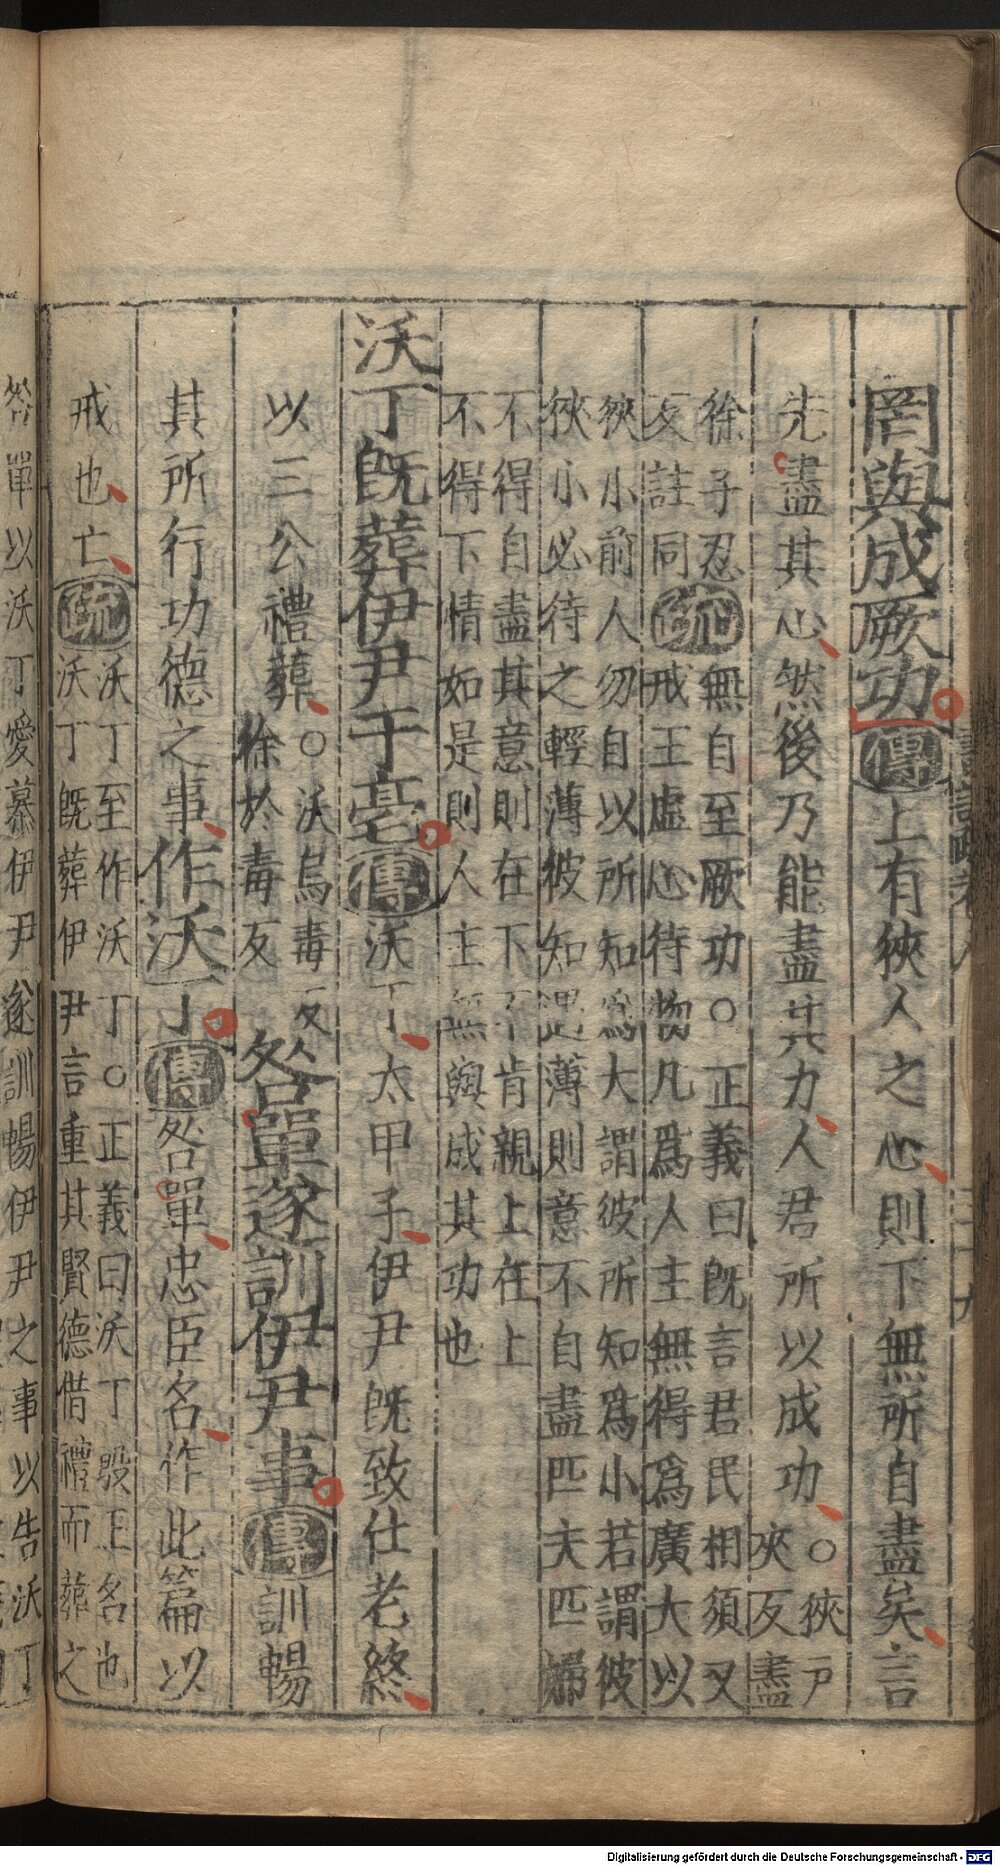 罔與成厥功傳上有狹人之心則下無所自盡矣言
先盡其心然後乃能盡其力人君所以成功○狹戶
夾反盡
徐子忍
反註同
疏
無自至厥功○正義曰既言君民相須又
戒王虛心待物凡爲人主無得爲廣大以
狹小前人勿自以所知爲大謂彼所知爲小若謂彼
狹小必待之輕薄彼知遇薄則意不自盡匹夫匹婦
不得自盡其意則在下不肯親上在上
不得下情如是則人主無與成其功也
沃丁既葬伊尹于亳傳沃丁太甲子伊尹既致仕老終
以三公禮葬○沃烏毒反
徐於毒反
咎單遂訓伊尹事傳訓暢
其所行功德之事作沃丁傳咎單忠臣名作此篇以
戒也亡疏
沃丁至作沃丁○正義曰沃丁殷王名也
沃丁既葬伊尹言重其賢德借禮而葬之
咎單以沃丁愛慕伊尹遂訓暢伊尹之事以告沃丁
Digitalisierung gefördert durch die Deutsche Forschungsgemeinschaft - DFG